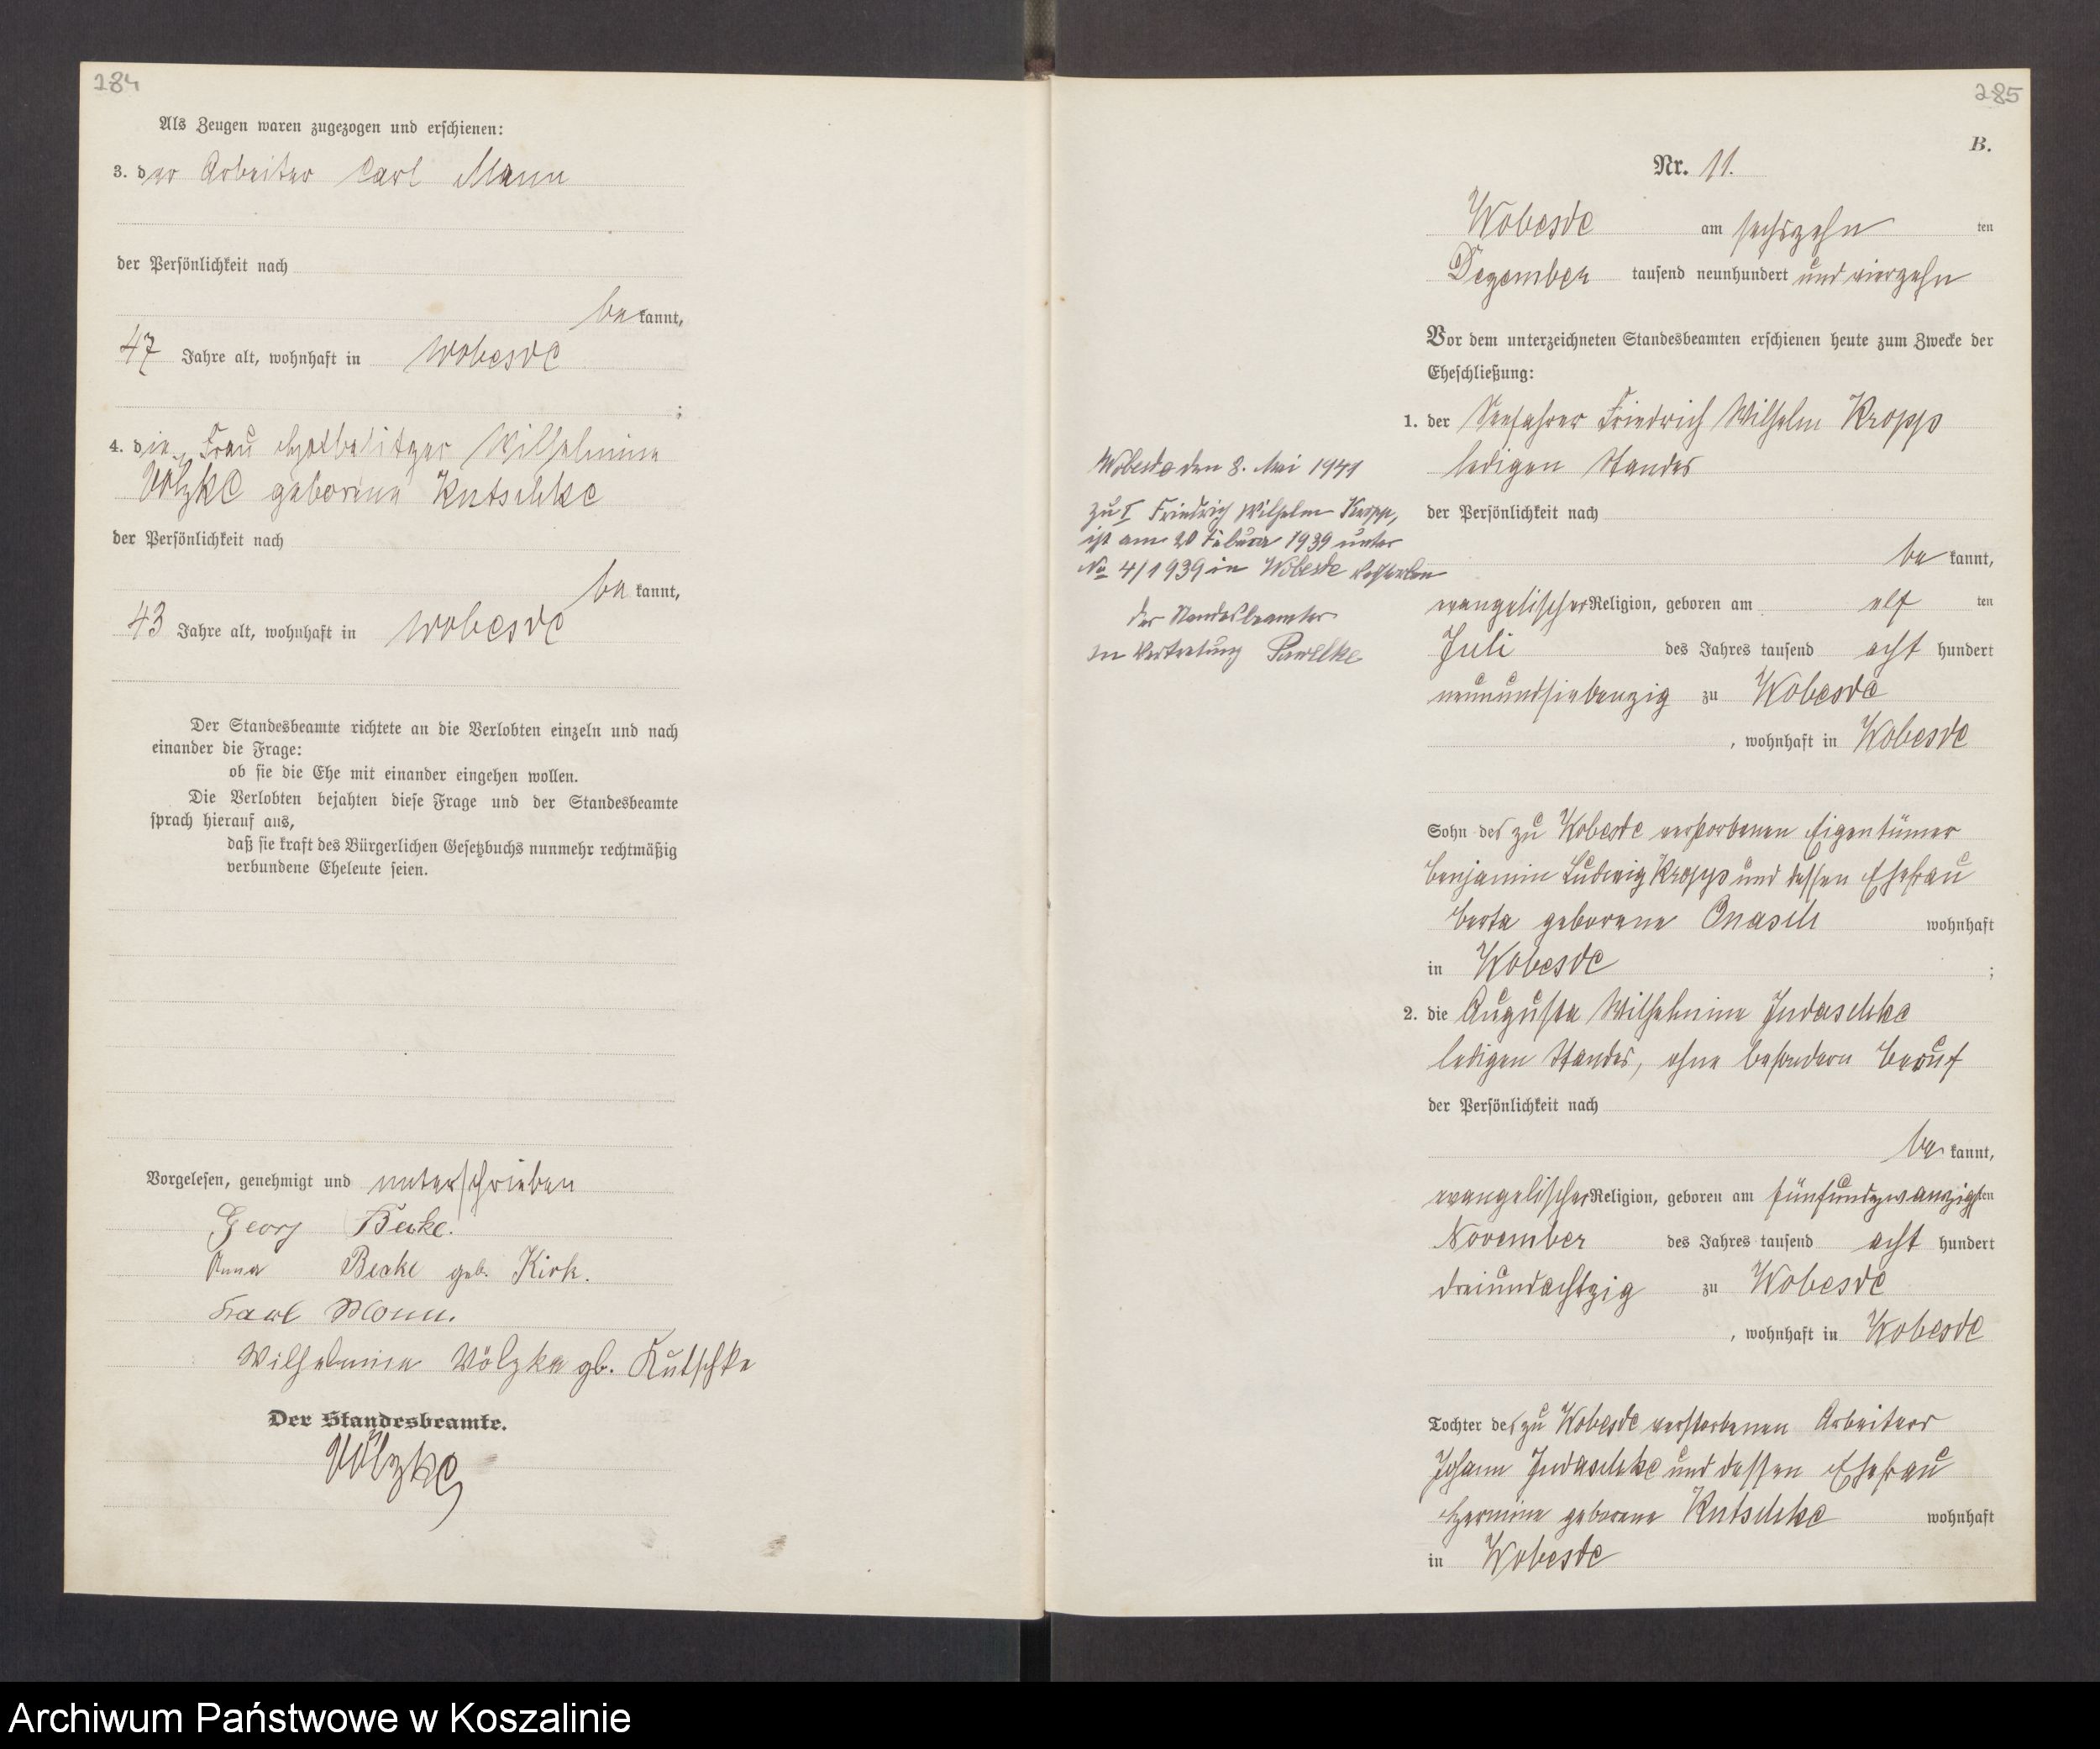 284
Als Zeugen waren zugezogen und erschienen:
3. der Arbeiter Carl Mann
der Persönlichkeit nach
be kannt,
47 Jahre alt, wohnhaft in Wobesde
;
4. die Frau Hofbesitzer Wilhelmine
Völzke geborene Kutschke
der Persönlichkeit nach
be kannt,
43 Jahre alt, wohnhaft in Wobesde
Der Standesbeamte richtete an die Verlobten einzeln und nach
einander die Frage:
ob sie die Ehe mit einander eingehen wollen.
Die Verlobten bejahten diese Frage und der Standesbeamte
sprach hierauf aus,
daß sie kraft des Bürgerlichen Gesetzbuchs nunmehr rechtmäßig
verbundene Eheleute seien.
Vorgelesen, genehmigt und unterschrieben
Georg
Anna geb. Kirk.
Karl Mann.
Wilhelmine Völzke gb. Kutschke
Der Standesbeamte.
Völzke
285
B.
Nr. 11.
Wobesde am sechszehn ten
Dezember tausend neunhundert und vierzehn
Vor dem unterzeichneten Standesbeamten erschienen heute zum Zwecke der
Eheschließung:
1. der Seefahrer Friedrich Wilhelm Kropp
ledigen Standes
der Persönlichkeit nach
be kannt,
evangelischer Religion, geboren am elf ten
Juli des Jahres tausend acht hundert
neunundsiebenzig zu Wobesde
, wohnhaft in Wobesde
Sohn des zu Wobesde verstorbenen Eigentümer
Benjamin Ludwig Kropp und dessen Ehefrau
Berta geborene Onasch wohnhaft
in Wobesde ;
2. die Auguste Wilhelmine Judaschke
ledigen Standes, ohne besondern Beruf
der Persönlichkeit nach
be kannt,
evangelischer Religion, geboren am fünfundzwanzigsten
November des Jahres tausend acht hundert
dreiundachtzig zu Wobesde
, wohnhaft in Wobesde
Tochter des zu Wobesde verstorbenen Arbeiters
Johann Judaschke und dessen Ehefrau
Hermine geborene Kutschke wohnhaft
in Wobesde
Wobesde den 8. Mai 1941
zu I Friedrich Wilhelm Kropp,
ist am 20 Februar 1939 unter
No 4/1939 in Wobesde verstorben
der Standesbeamter
in Vertretung Pawelke
Archiwum Państwowe w Koszalinie